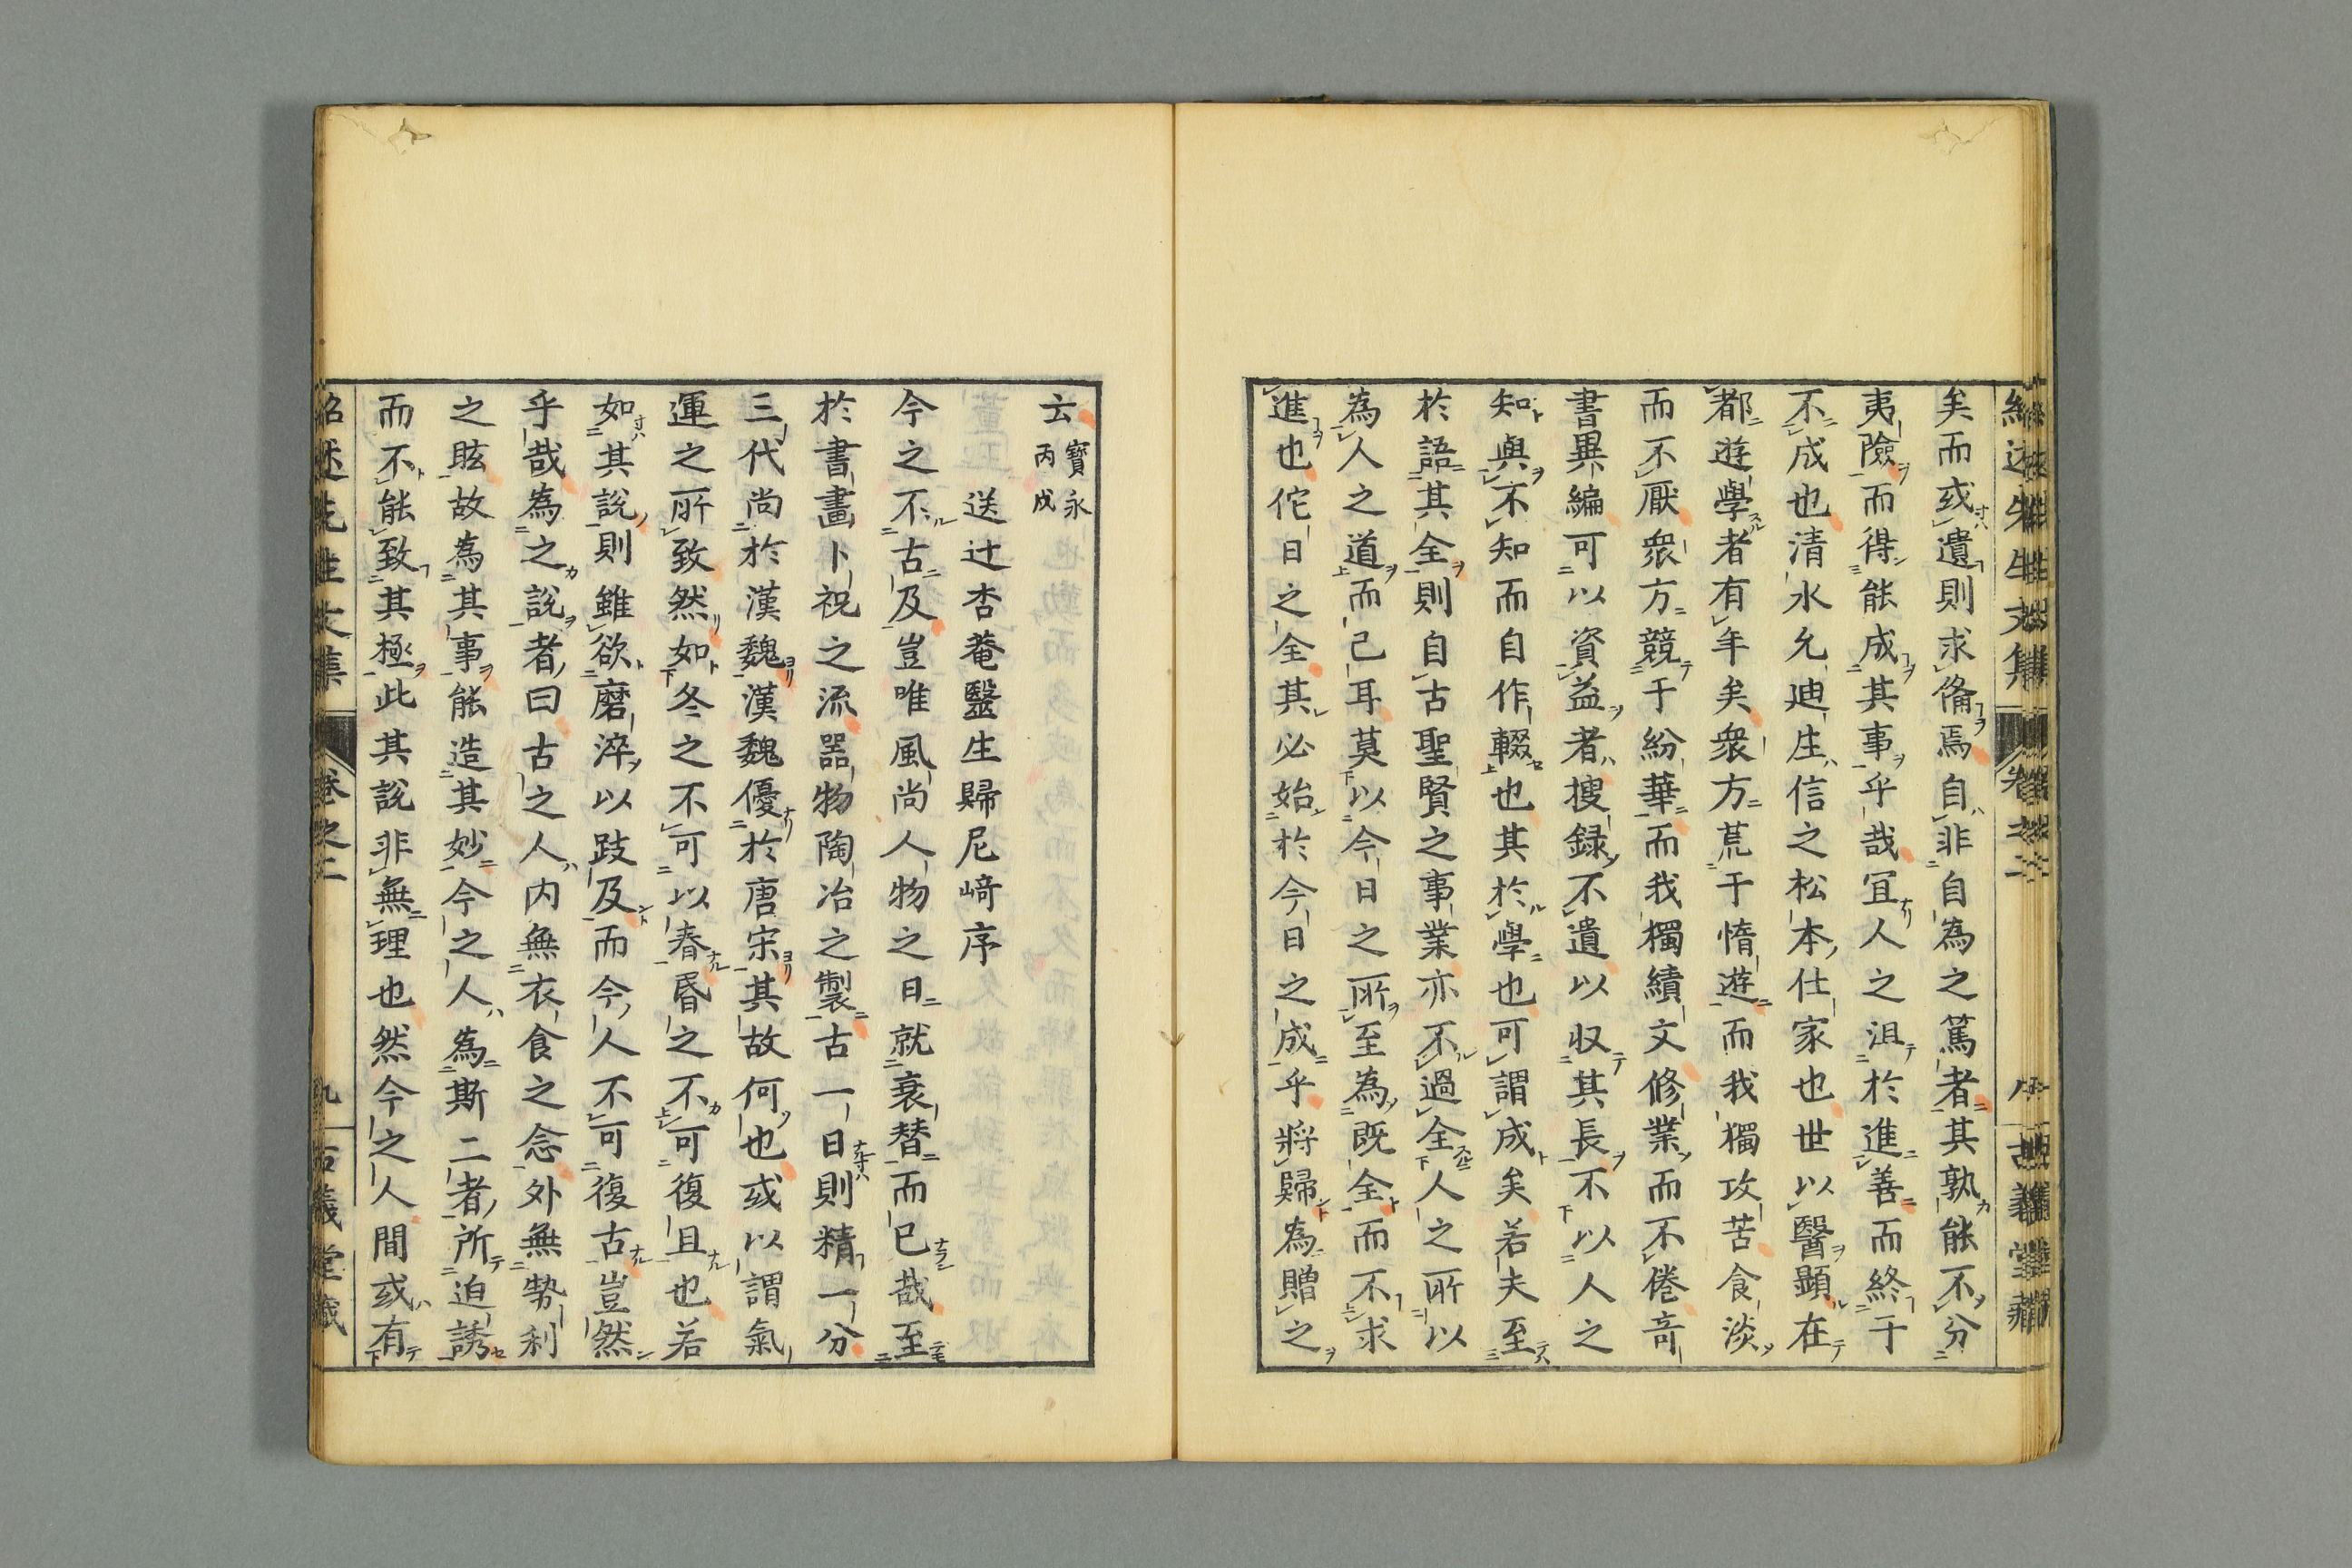 矣而或遺則求偹焉自非自為之篤者其孰能不分
夷險而得能成其事乎哉冝人之沮於進善而終于
不成也清水允迪庄信之松本仕家也世以醫顕在
都遊學者有年矣衆方荒于惰遊而我獨攻苦食淡
而不厭衆方競于紛華而我獨績文修業而不倦竒
書異編可以資益者捜録不遺以収其長不以人之
知與不知而自作輟也其於學也可謂成矣若夫至
於語其全則自古聖賢之事業亦不過全人之所以
為人之道而已耳莫以今日之所至為既全而不求
進也佗日之全其必始於今日之成乎將歸為贈之
云
寶永
丙戌
送辻杏菴醫生歸尼﨑序
今之不古及豈唯風尚人物之日就衰替而已哉至
於書畫卜祝之流器物陶冶之製古一日則精一分
三代尚於漢魏漢魏優於唐宋其故何也或以謂氣
運之所致然如冬之不可以春昏之不可復且也若
如其說則雖欲磨淬以跂及而今人不可復古豈然
乎哉為之說者曰古之人内無衣食之念外無勢利
之眩故為其事能造其妙今之人為斯二者所迫誘
而不能致其極此其說非無理也然今之人間或有
紹述先生文集
卷之二
九
古義堂藏